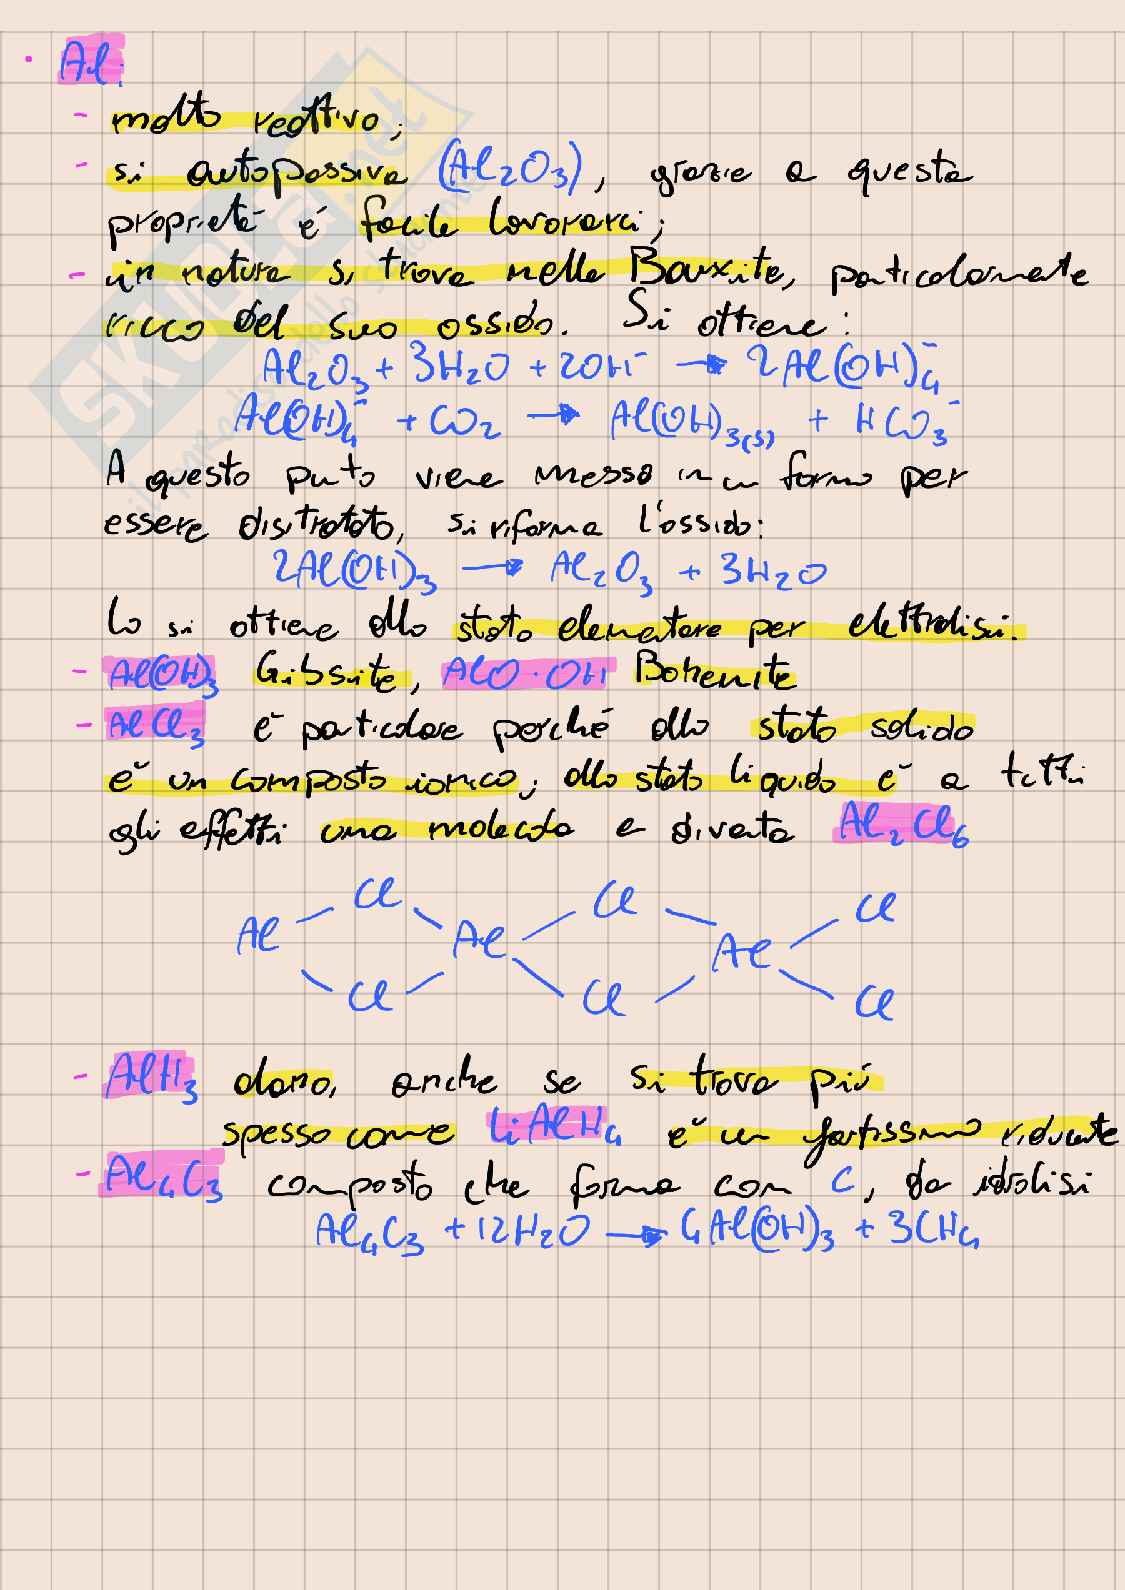 · Al:
- molto reattivo;
- si autopassiva (Al₂O₃), grazie a questa
proprietà è facile lavorarci;
- in natura si trova nella Bauxite, particolarmente
ricco del suo ossido. Si ottiene:
Al₂O₃ + 3H₂O + 2OH⁻ → 2Al(OH)₄⁻
Al(OH)₄⁻ + CO₂ → Al(OH)₃(s) + HCO₃⁻
A questo punto viene messo in un forno per
essere disidratato, si riforma l'ossido:
2Al(OH)₃ → Al₂O₃ + 3H₂O
Lo si ottiene allo stato elementare per elettrolisi.
- Al(OH)₃ Gibsite, AlO·OH Bohemite
- AlCl₃ è particolare perché allo stato solido
è un composto ionico, allo stato liquido è a tutti
gli effetti una molecola e diventa Al₂Cl₆
Cl Cl Cl
Al Al Al
Cl Cl Cl
- AlH₃ alano, anche se si trova più
spesso come LiAlH₄ è un fortissimo riducente
- Al₄C₃ composto che forma con C, da idrolisi
Al₄C₃ + 12H₂O → 4Al(OH)₃ + 3CH₄